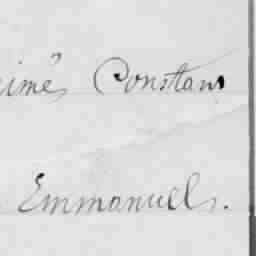 aimé, Constans
Emmanuel.